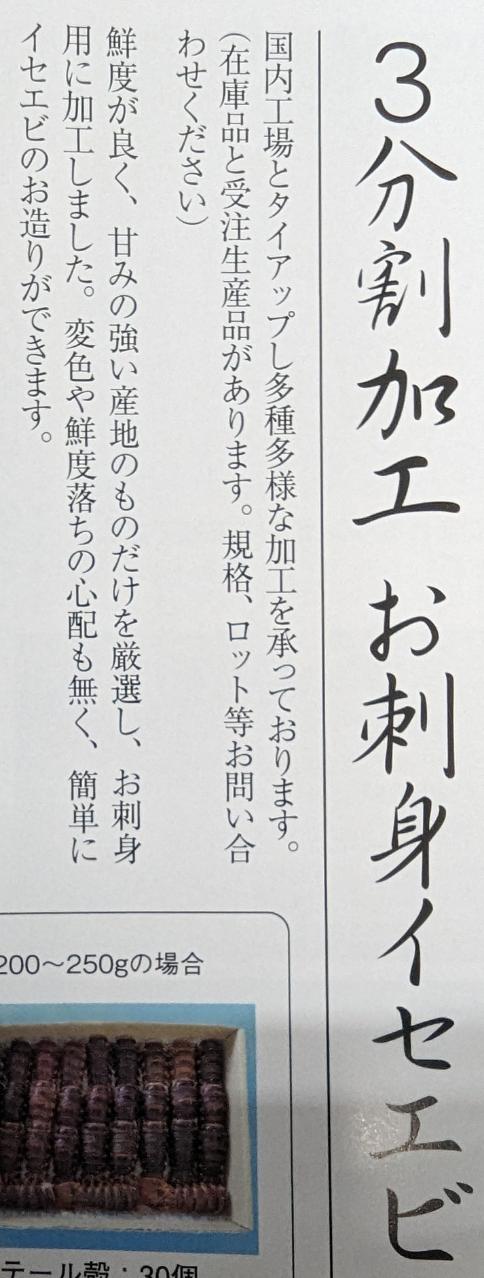 3分割加工 お刺身イセエビ
国内工場とタイアップし多種多様な加工を承っております。
(在庫品と受注生産品があります。規格、ロット等お問い合
わせください)
鮮度が良く、甘みの強い産地のものだけを厳選し、お刺身
用に加工しました。変色や鮮度落ちの心配も無く、簡単に
イセエビのお造りができます。
200～250gの場合
テール殻：30個